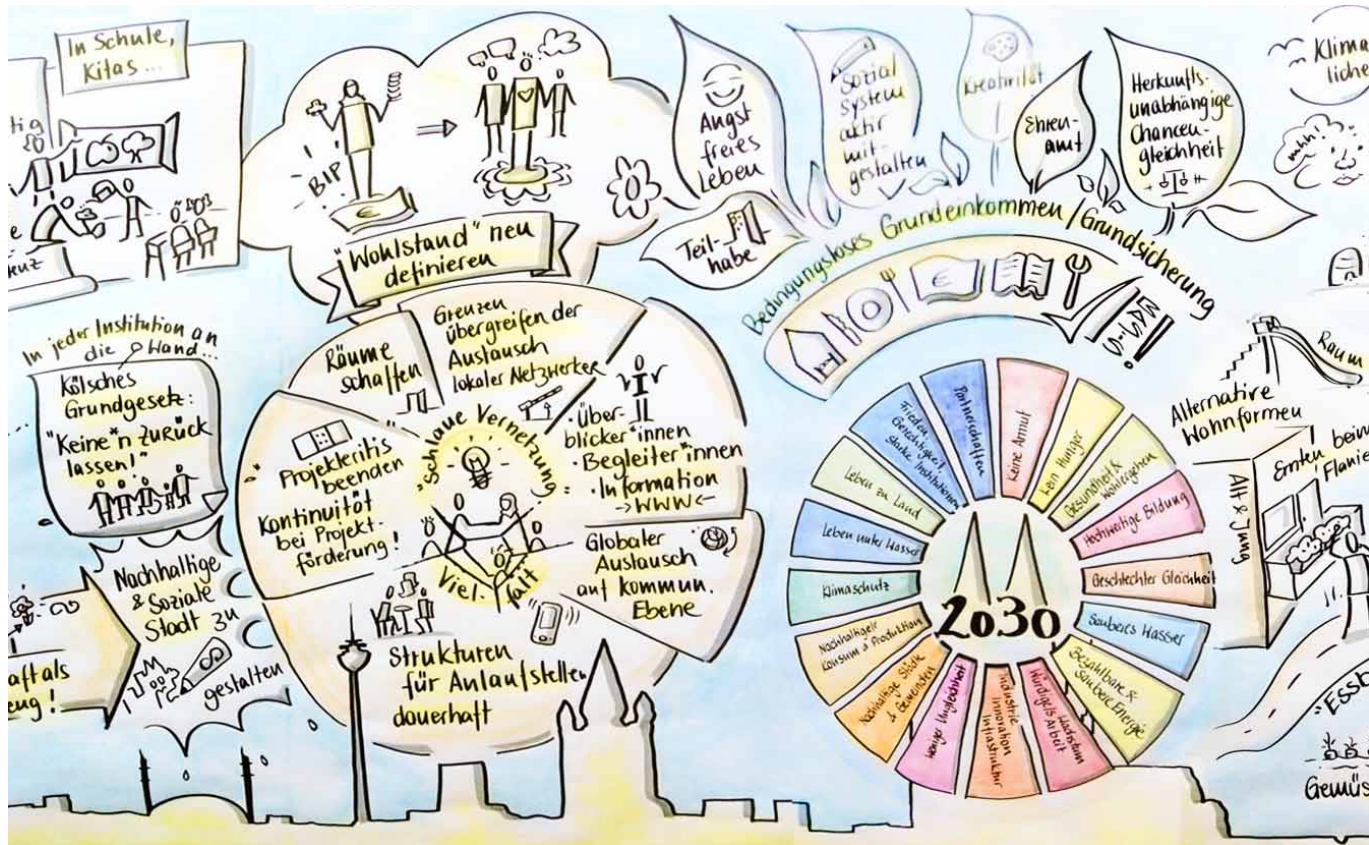 In Schule,
Kitas...
tig
BIP
€
"Wohlstand" neu
definieren
Angst
freies
Leben
Sozial
System
aktiv
mit-
gestalten
Kreativität
Ehren-
amt
Herkunfts-
unabhängige
Chancen-
gleichheit
Teil-
habe
Bedingungsloses Grundeinkommen / Grundsicherung
€
Klima
liche
mhh!
In jeder Institution an
die Wand...
Kölsches
Grundgesetz:
"Keine*n zurück
lassen!"
Nachhaltige
& Soziale
Stadt zu
gestalten
aft als
eug!
Räume
schaffen
Grenzen
übergreifender
Austausch
lokaler Netzwerker
Projekteritis
beenden
Kontinuität
bei Projekt-
förderung!
"Schlaue Vernetzung"
Viel-
falt
• Über-
blicker*innen
• Begleiter*innen
• Information
→ WWW ←
Globaler
Austausch
auf kommun.
Ebene
Strukturen
für Anlaufstellen
dauerhaft
2030
Keine Armut
Kein Hunger
Gesundheit &
Wohlergehen
Hochwertige Bildung
Geschlechter Gleichheit
Sauberes Wasser
Bezahlbare &
Saubere Energie
Würdige Arbeit
Wachstum
Industrie
Innovation
Infrastruktur
Weniger Ungleichheit
Nachhaltige Städte
& Gemeinden
Nachhaltiger
Konsum & Produktion
Klimaschutz
Leben unter Wasser
Leben zu Land
Frieden,
Gerechtigkeit,
starke Institutionen
Partnerschaften
Alternative
Wohnformen
Raum
Alt & Jung
Ernten beim
Flanie
"Essb
Gemüs